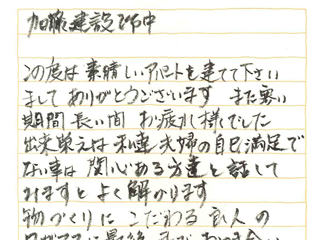 加藤建設 御中
この度は素晴しいアパートを建てて下さい
ましてありがとうございます また寒い
期間 長い間 お疲れ様でした
出来栄えは私達夫婦の自己満足で
ない事は 関心ある方達と話して
みますと よく解かります
物づくりに こだわる 良い人の